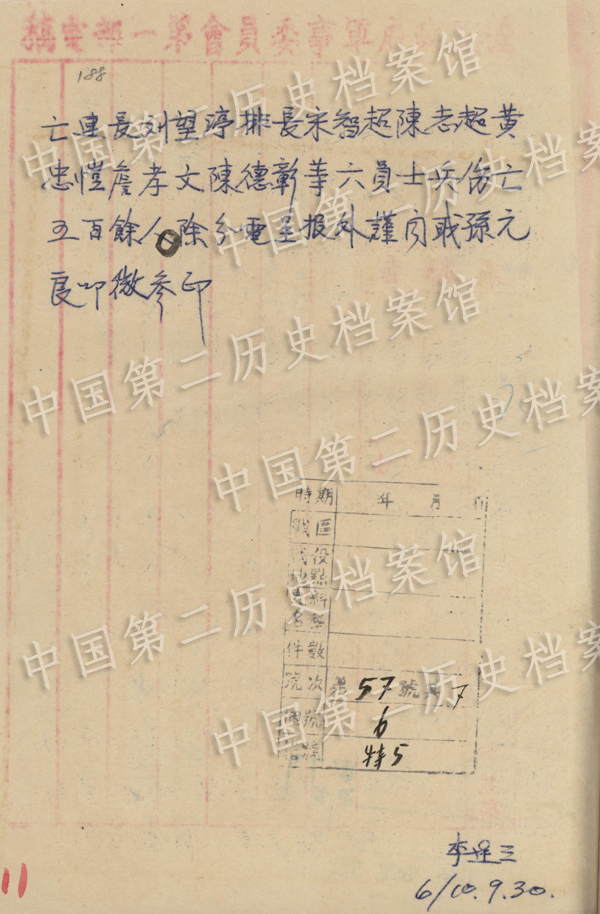 軍事委員會第一部電稿
188
亡連長刘望渟排長宋智超陳志超黃
忠愷詹孝文陳德彰等六員士兵伤亡
五百餘人除分電呈报外謹闻 孫元
良叩微参印
時期 年 月 日
戰區
戰役
地點
資料
件數
號次 第57號 7
圖號 6
特5
李
6/10.9.30.
11
中国第二历史档案馆
中国第二历史档案馆
中国第二历史档案馆
中国第二历史档案馆
中国第二历史档案馆
中国第二历史档案馆